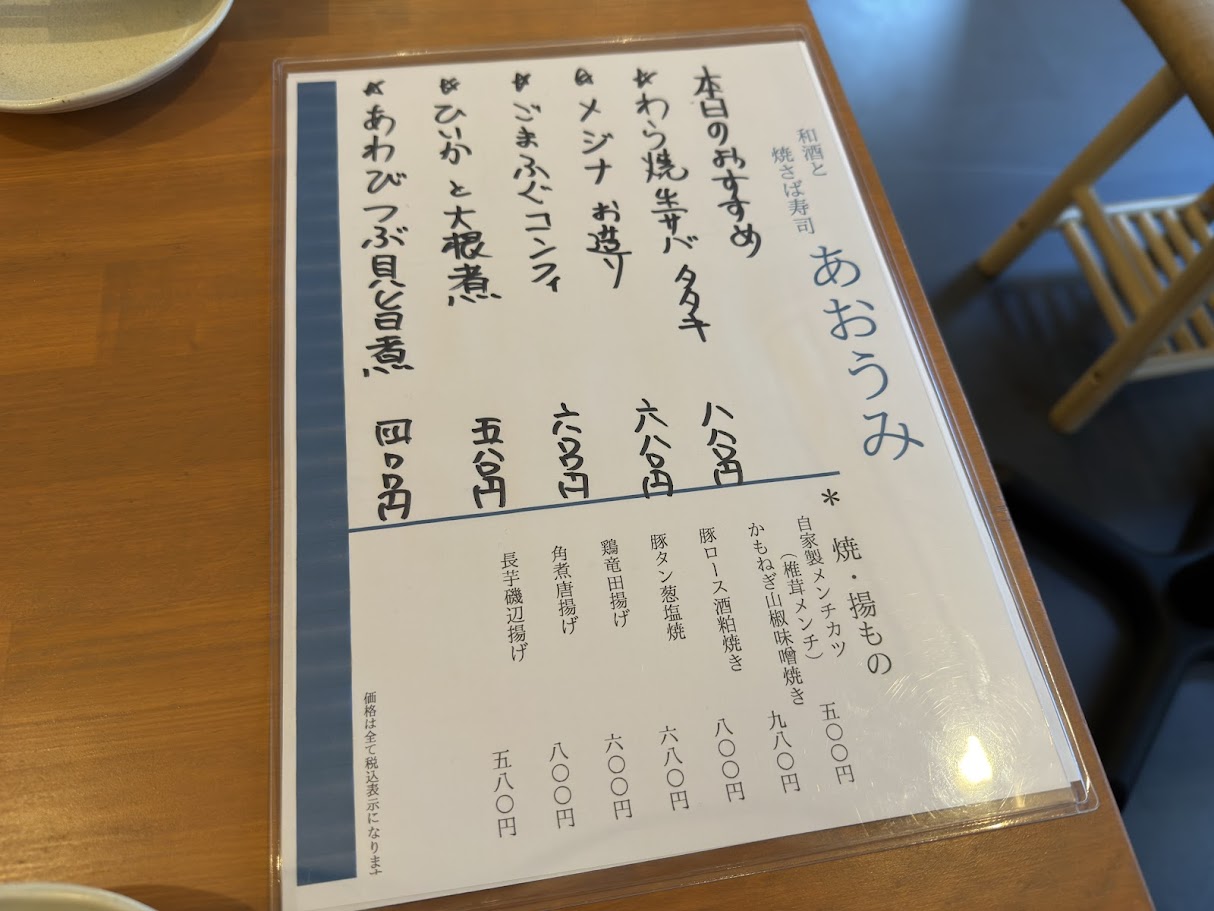 和酒と
焼さば寿司
あおうみ
本日のおすすめ
☆わら焼生サバ タタキ 八八〇円
☆メジナ お造り 六八〇円
☆ごまふぐコンフィ 六〇〇円
☆ひいか と大根煮 五八〇円
☆あわびつぶ貝と旨煮 四〇〇円
* 焼・揚もの
自家製メンチカツ
(椎茸メンチ) 五〇〇円
かもねぎ山椒味噌焼き 九八〇円
豚ロース酒粕焼き 八〇〇円
豚タン葱塩焼 六八〇円
鶏竜田揚げ 六〇〇円
角煮唐揚げ 八〇〇円
長芋磯辺揚げ 五八〇円
価格は全て税込表示になります